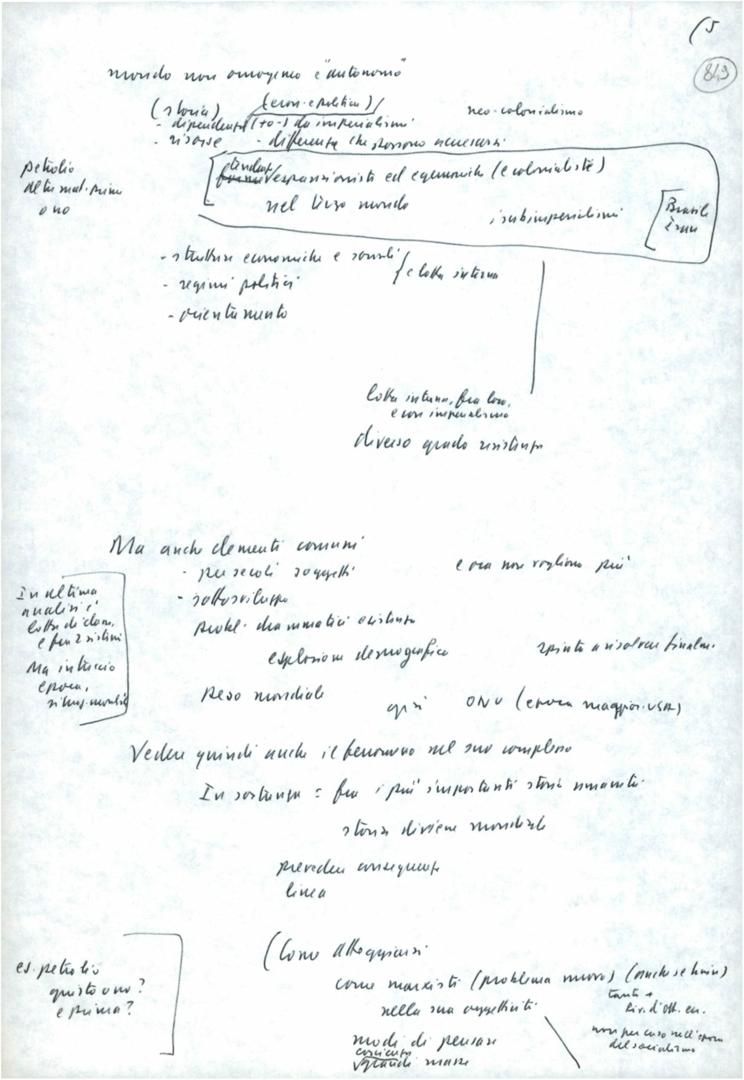 (5
843
mondo non omogeneo e "autonomo"
(storia) (econ. e politica)/ neo-colonialismo
- dipendenza (+ o -) da imperialismi
- risorse - differenze che possono accrescersi
petrolio
altre mat. prime
o no
tendenze espansioniste ed egemoniche (e colonialiste)
nel terzo mondo
i subimperialismi
Brasile
Iran
- strutture economiche e sociali
- regimi politici
e lotta interna
- orientamento
lotta interna, fra loro,
e con imperialismo
diverso grado resistenza
Ma anche elementi comuni
- per secoli soggetti e ora non vogliono più
- sottosviluppo
probl. drammatici esistenza
esplosione demografica spinta a risolvere finalm.
peso mondiale oggi ONU (epoca maggior. USA)
In ultima
analisi è
lotta di clas.
e fra 2 sistemi
Ma intreccio
epoca,
Vedere quindi anche il fenomeno nel suo complesso
In sostanza = fra i più importanti storia umanità
storia diviene mondiale
prevedere conseguenze
linea
es. petrolio
giusto o no?
e prima?
(Come atteggiarsi
come marxisti (problema nuovo) (anche se Lenin)
nella sua oggettività
tanto +
Riv. d'Ott. ecc.
non per caso nell'epoca
del socialismo
modi di pensare
coscienza
grandi masse